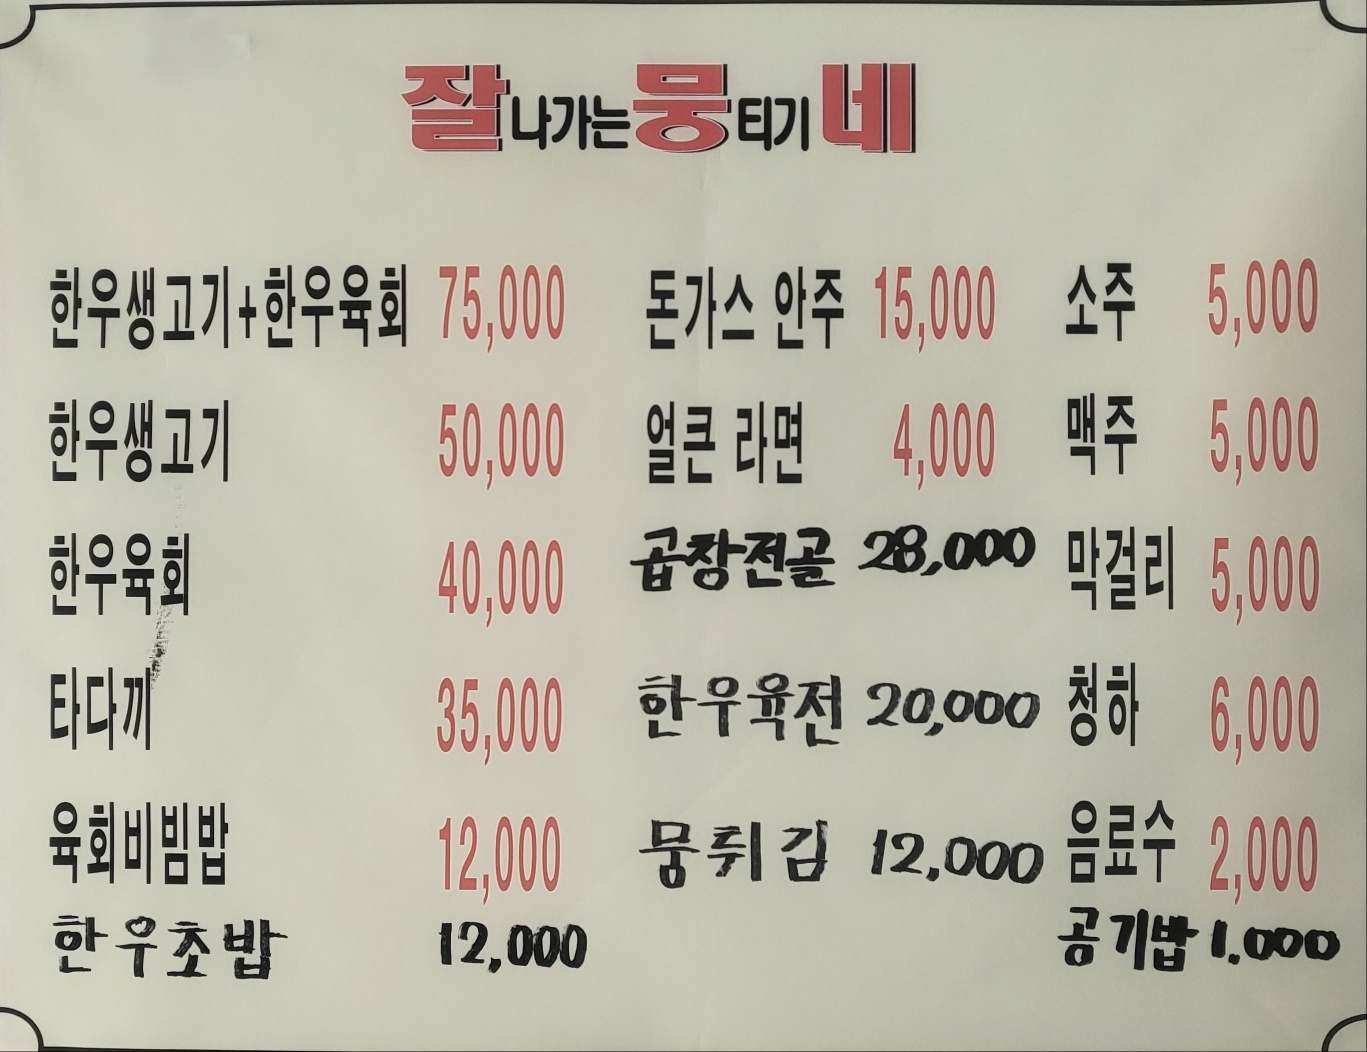 잘나가는뭉티기네
한우생고기+한우육회 75,000
한우생고기 50,000
한우육회 40,000
타다끼 35,000
육회비빔밥 12,000
한우초밥 12,000
돈가스 안주 15,000
얼큰 라면 4,000
곱창전골 28,000
한우육전 20,000
뭉튀김 12,000
소주 5,000
맥주 5,000
막걸리 5,000
청하 6,000
음료수 2,000
공기밥 1.000